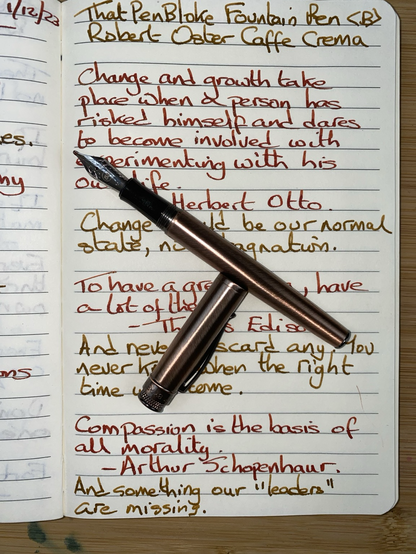 1/12/23
es.
my
ons
ThatPenBloke Fountain Pen <B>
Robert Oster Caffe Crema
Change and growth take
place when a person has
risked himself and dares
to become involved with
experimenting with his
life.
Herbert Otto.
Change ould be our normal
state, no agnation.
To have a grea , have
a lot of the
- Th s Ediso
And neve scard any. You
never k when the right
time come.
Compassion is the basis of
all morality.
- Arthur Schopenhaur.
And something our "leaders"
are missing.